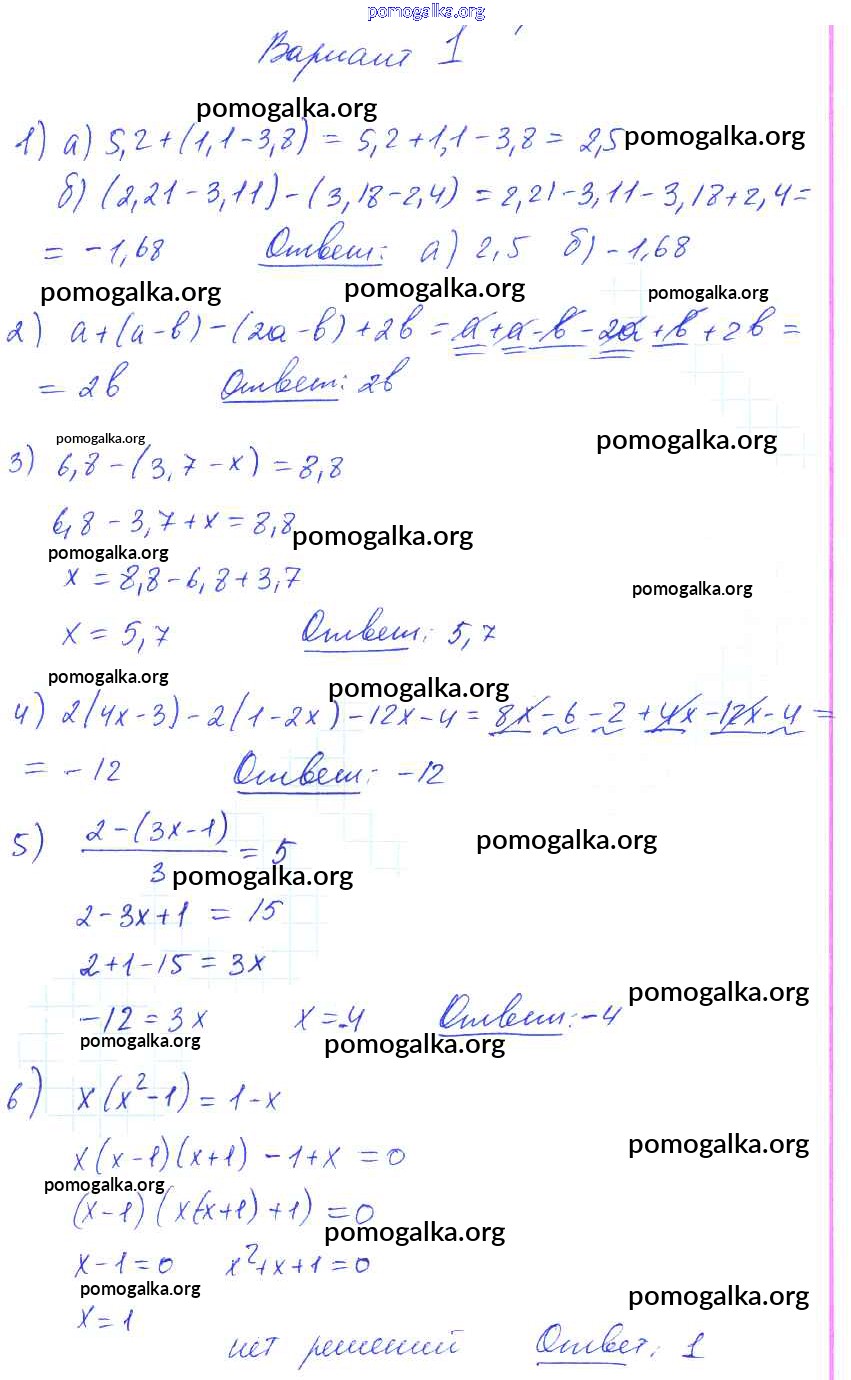 pomogalka.org
Вариант 1
pomogalka.org
1) а) 5,2+(1,1-3,8) = 5,2+1,1-3,8 = 2,5 pomogalka.org
б) (2,21-3,11)-(3,18-2,4) = 2,21-3,11-3,18+2,4=
= -1,68 Ответ: а) 2,5 б) -1,68
pomogalka.org pomogalka.org pomogalka.org
2) a+(a-b)-(2a-b)+2b = a+a-b-2a+b+2b =
= 2b Ответ: 2b
pomogalka.org pomogalka.org
3) 6,8-(3,7-x) = 8,8
6,8-3,7+x = 8,8 pomogalka.org
pomogalka.org
x = 8,8-6,8+3,7 pomogalka.org
x = 5,7 Ответ: 5,7
pomogalka.org pomogalka.org
4) 2(4x-3)-2(1-2x)-12x-4 = 8x-6-2+4x-12x-4 =
= -12 Ответ: -12
5) 2-(3x-1) pomogalka.org
= 5
3 pomogalka.org
2-3x+1 = 15
2+1-15 = 3x
pomogalka.org
-12 = 3x x = -4 Ответ: -4
pomogalka.org pomogalka.org
6) x(x²-1) = 1-x
x(x-1)(x+1)-1+x = 0 pomogalka.org
pomogalka.org
(x-1)(x(x+1)+1) = 0
pomogalka.org
x-1=0 x²+x+1=0
pomogalka.org pomogalka.org
x = 1
нет решений Ответ: 1